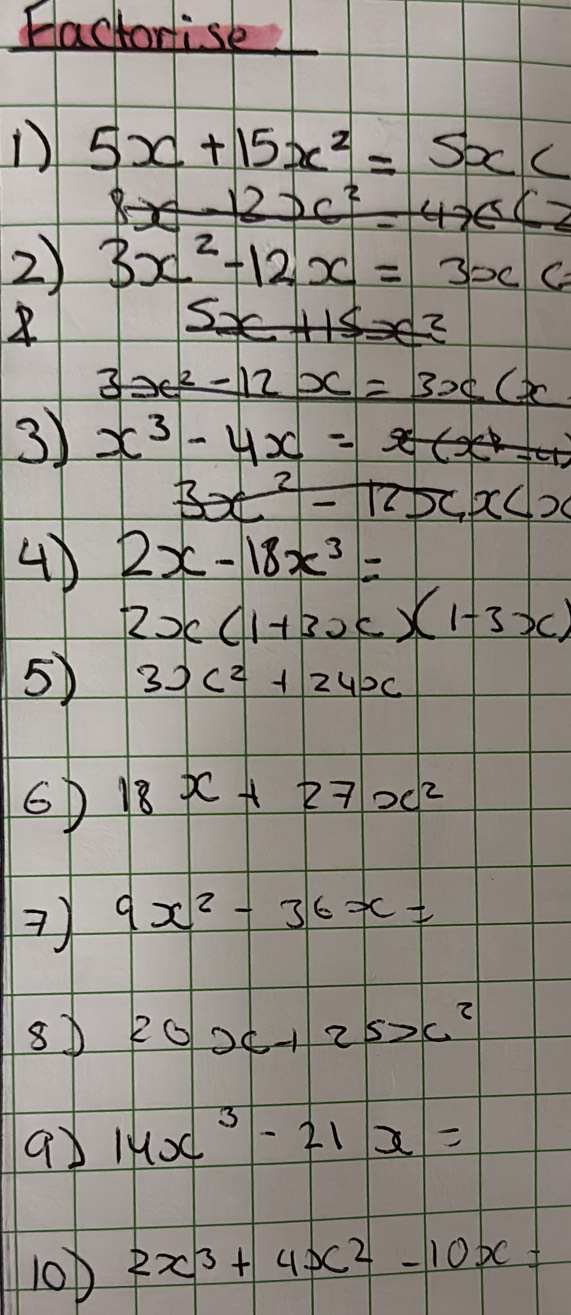 Factorise
1) 5x + 15x² = 5x (
8x - 12x² = 4x (2
2) 3x² - 12x = 3x (
5x + 15x²
3x² - 12x = 3x (x
3) x³ - 4x = x (x² - 4)
3x² - 12x x(x
4) 2x - 18x³ =
2x (1 + 3x)(1 - 3x)
5) 3x² + 24x
6) 18x + 27x²
7) 9x² - 36x =
8) 20x + 25x²
9) 14x³ - 21x =
10) 2x³ + 4x² - 10x =